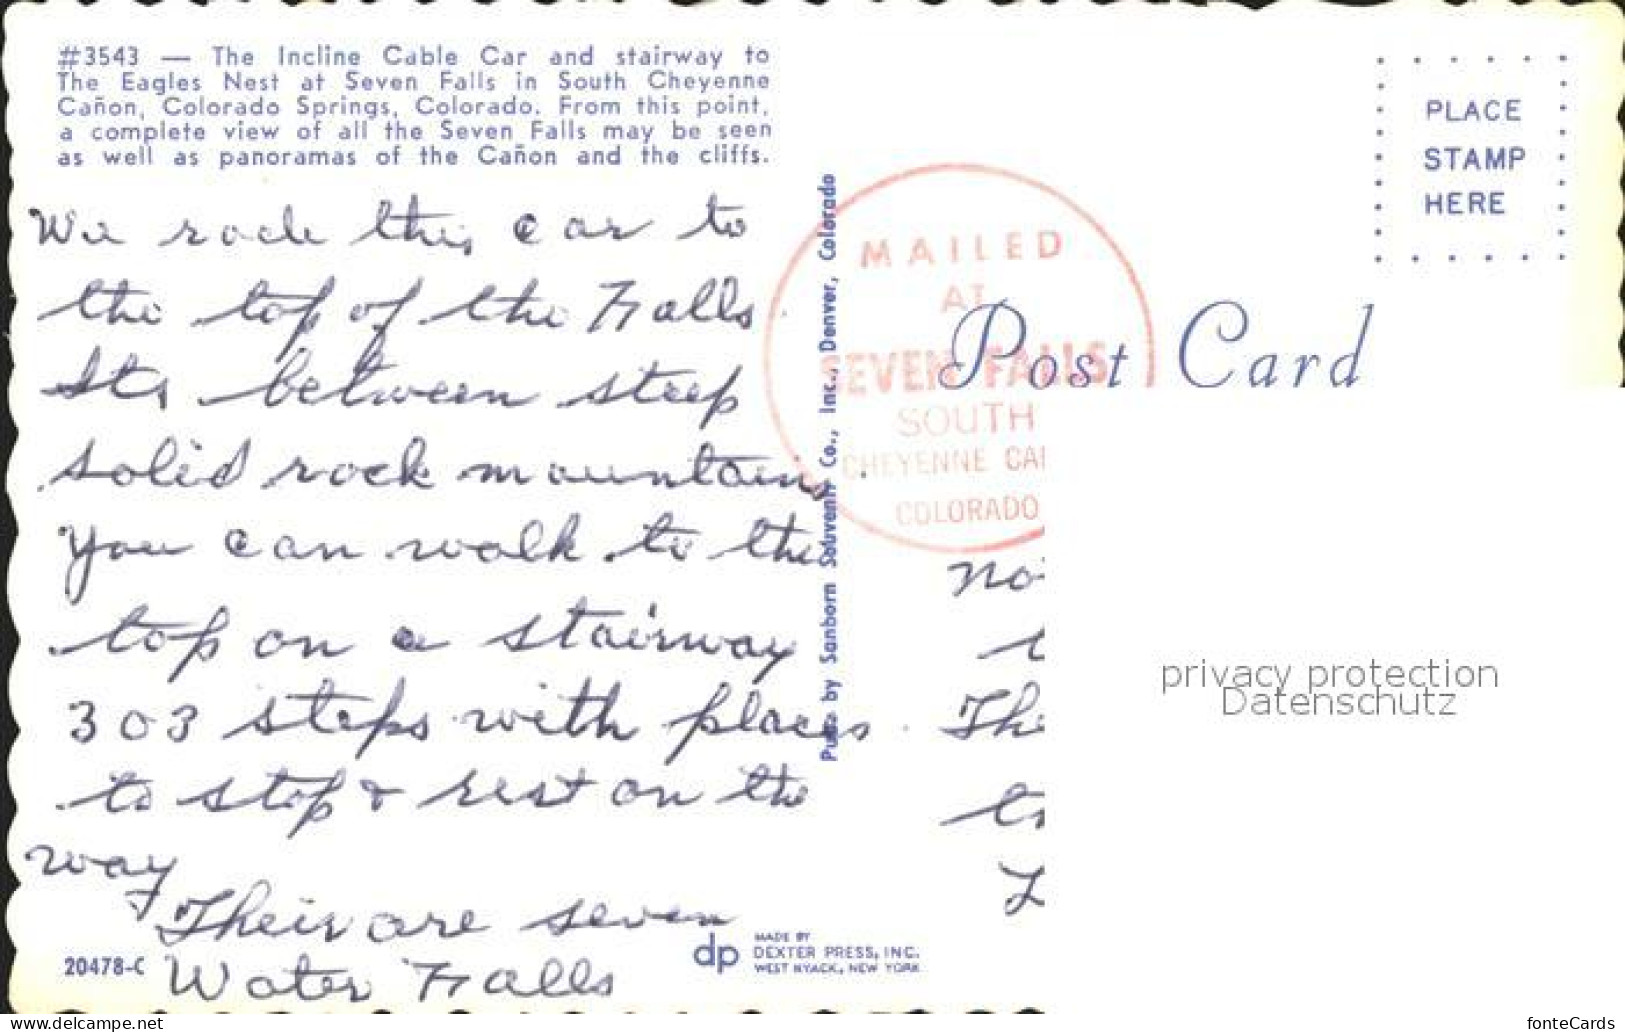 #3543 — The Incline Cable Car and stairway to
The Eagles Nest at Seven Falls in South Cheyenne
Cañon, Colorado Springs, Colorado. From this point,
a complete view of all the Seven Falls may be seen
as well as panoramas of the Cañon and the cliffs.
We rode this car to
the top of the Falls
Its between steep
solid rock mountains.
You can walk to the
top on a stairway
303 steps with places
to stop & rest on the
way
Their are seven
Water Falls
20478-C
dp
MADE BY
DEXTER PRESS, INC.
WEST NYACK, NEW YORK
Pub. by Sanborn Souvenir Co., Inc., Denver, Colorado
MAILED
AT
SEVEN FALLS
SOUTH
CHEYENNE CA
COLORADO
Post Card
PLACE
STAMP
HERE
No
The
privacy protection
Datenschutz
www.delcampe.net
fonteCards